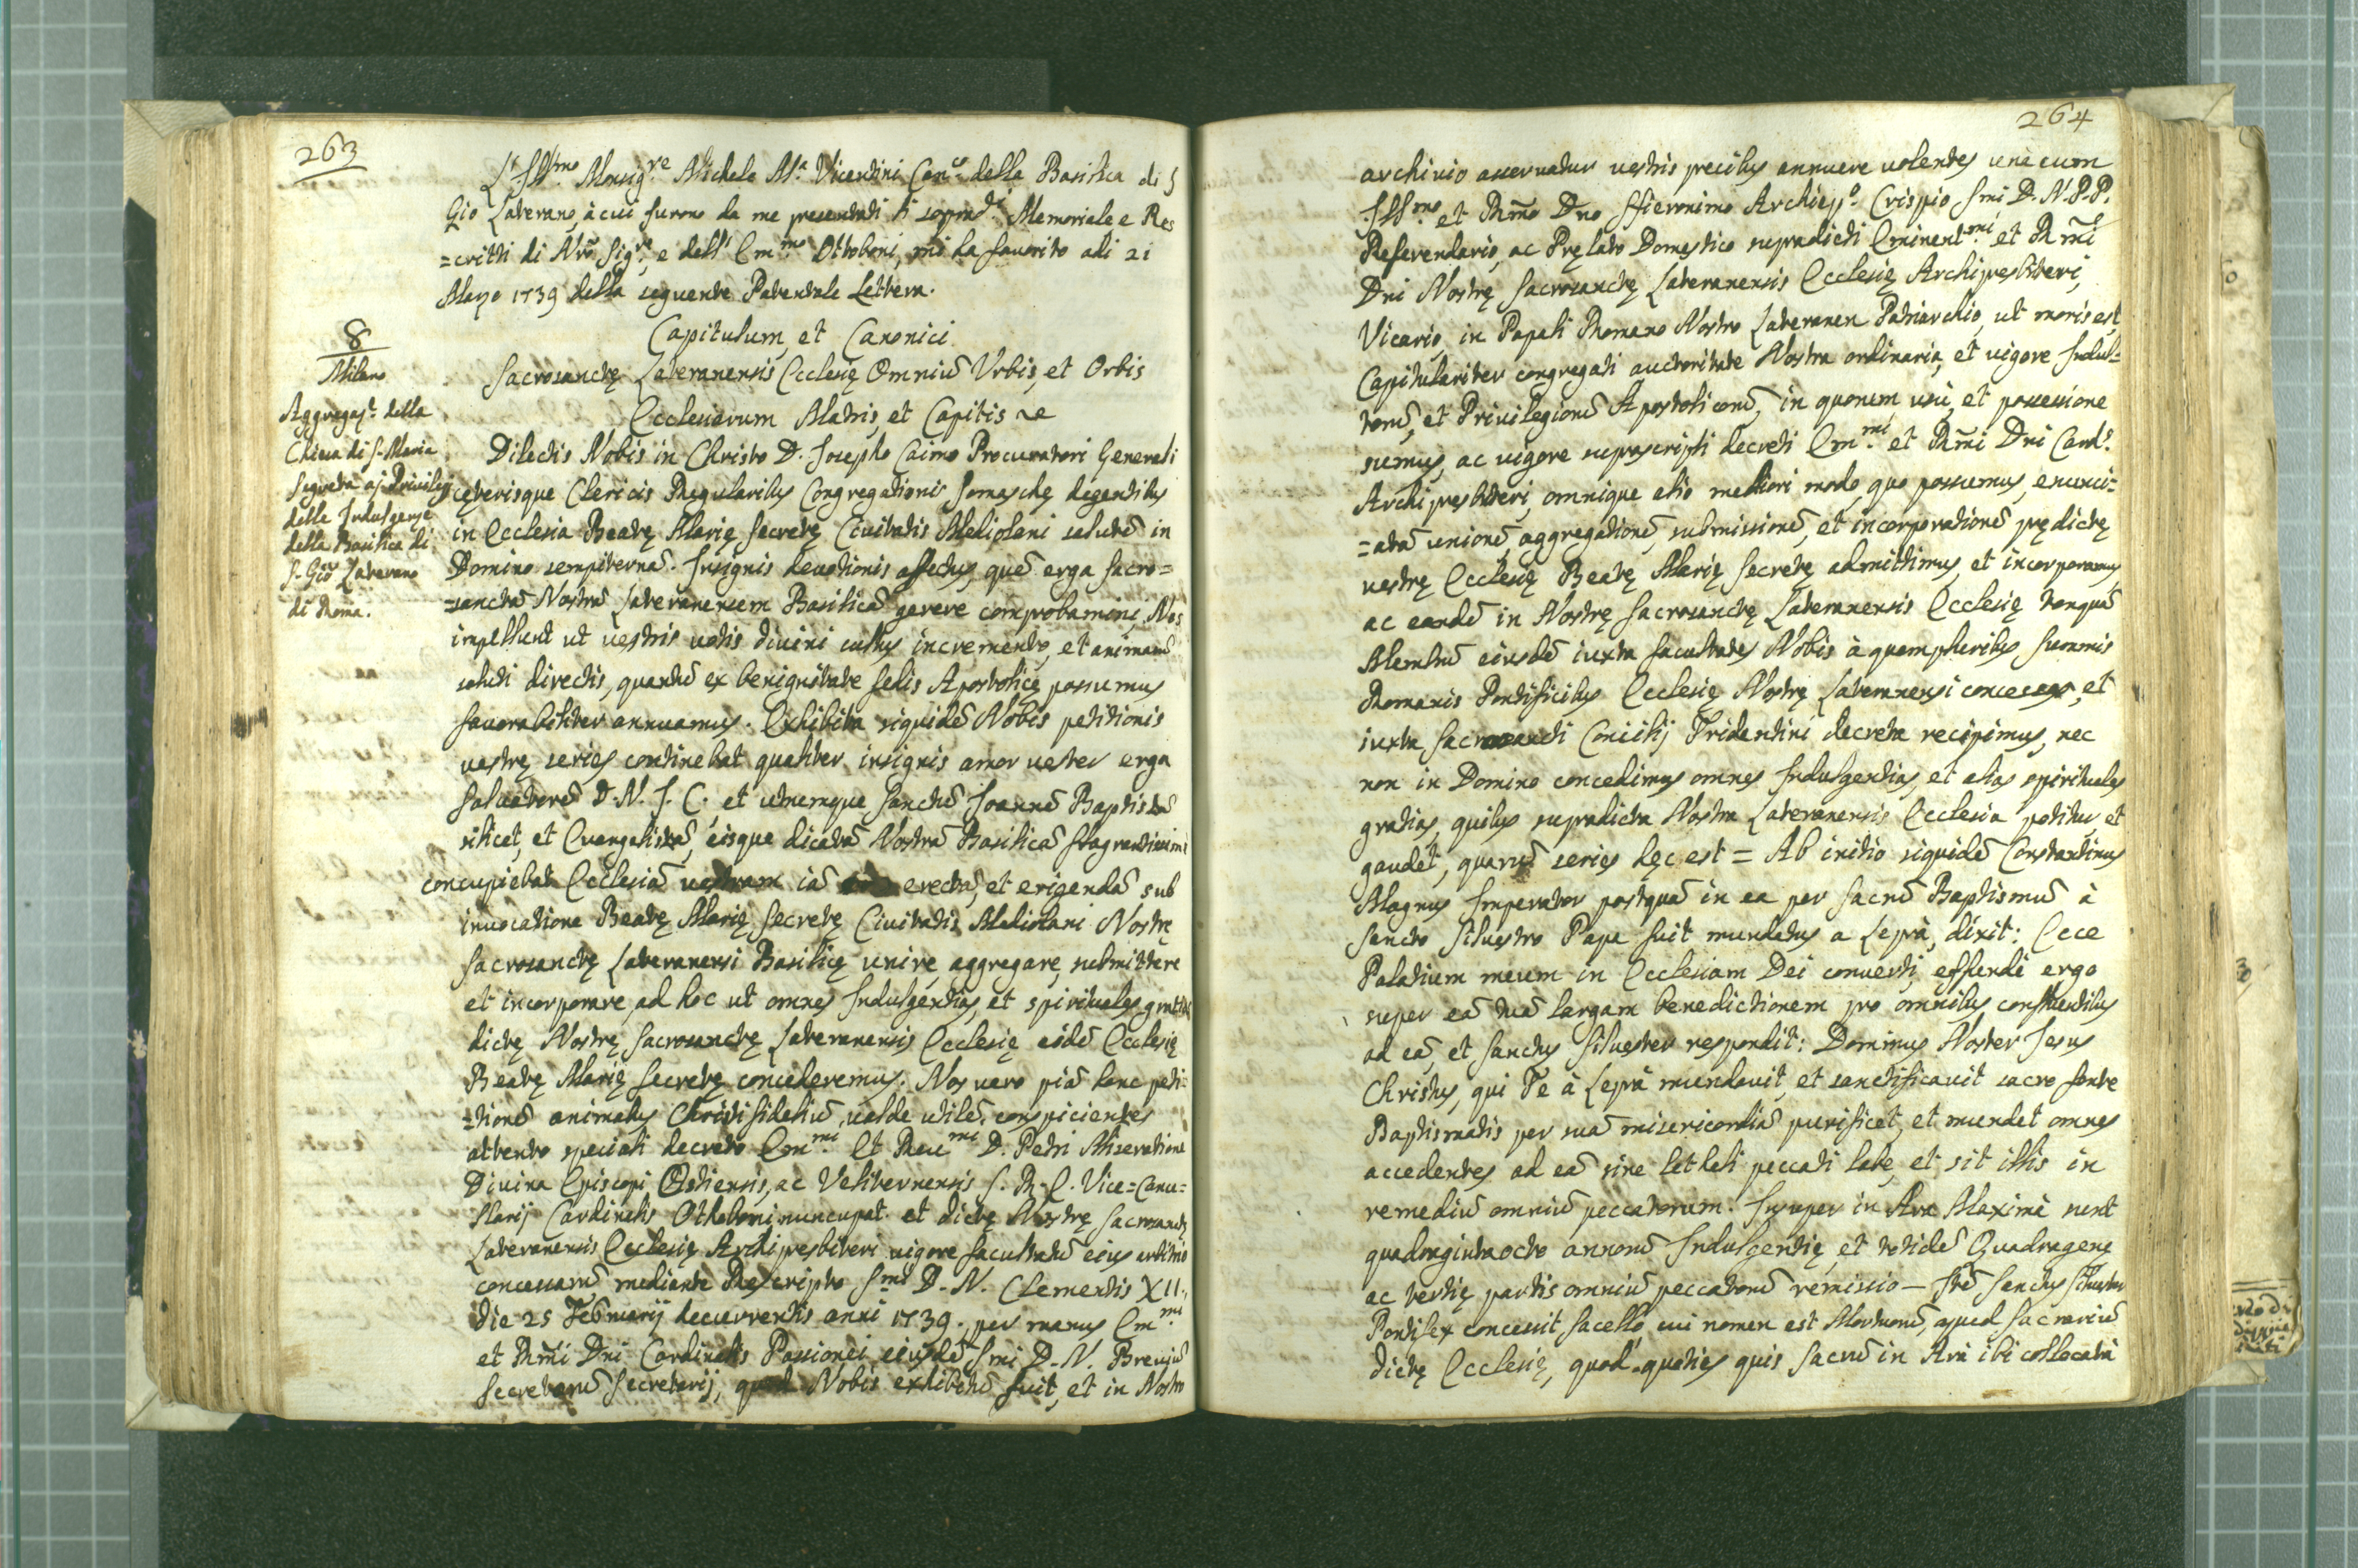 263
L'Ill.mo Monsig.re Michele M.a Vicentini Can.co della Basilica di S
Gio Laterano, à cui furono da me presentati li soprad.i Memoriale e Res
=critti di Nrõ Sig.re, e dell' Em.mo Ottoboni, mi ha favorito adi 21
Marzo 1739 della seguente Patentale Lettera.
8
Milano
Aggregaz.e della
Chiesa di S. Maria
Segreta a' Privileg
delle Indulgenze
della Basilica di
S. Gio Laterano
di Roma.
Capitulum, et Canonici
Sacrosanctę Lateranensis Ecclesię Omniũ Vrbis, et Orbis
Ecclesiarum Matris, et Capitis
Dilectis Nobis in Christo D. Josepho Caimo Procuratori Generali
cęterisque Clericis Regularibus Congregationis Somaschę degentibus
in Ecclesia Beatę Marię Secretę Civitatis Mediolani salutẽ in
Domino sempiternã. Insignis devotionis affectus, quẽ erga Sacro=
=sanctã Nostrã Lateranensem Basilicã gerere comprobamini, Nos
impellunt ut vestris votis divini cultus incremento, et animarũ
saluti directis, quantũ ex benignitate Sedis Apostolicę possumus
favorabiliter annuamus. Exhibita siquidẽ Nobis petitionis
vestrę series continebat qualiter insignis amor vester erga
Salvatorẽ D. N. J. C., et utrumque Sanctũ Joannẽ Baptistã
scilicet, et Evangelistã, eisque dicatã Nostrã Basilicã flagrantissimi
concupiebat Ecclesiã vestram iã erectã, et erigendã sub
invocatione Beatę Marię Secretę Civitatis Mediolani Nostrę
Sacrosanctę Lateranensi Basilicę unire, aggregare, submittere
et incorporare, ad hoc ut omnes Indulgentias, et spirituales gratias
dictę Nostrę Sacrosanctę Lateranensis Ecclesię eidẽ Ecclesię
Beatę Marię Secretę concederemus. Nos vero piã hanc peti=
=tionẽ animabus Christifideliũ valde utilẽ conspicientes
attento speciali decreto Em.mi Et Reu.mi D. Petri Miseratione
Divina Episcopi Ostiensis, ac Veliternensis S. R. E. Vice=Cance=
llarij Cardinalis Othoboni nuncupat. et dictę Nostrę Sacrosanctę
Lateranensis Ecclesię Archipresbiteri vigore facultatũ eius arbitrio
concessarũ mediante Rescripto S.mi D. N. Clementis XII.
die 25 Februarij decurrentis anni 1739. per manus Em.mi
et Rm̃i Dni Cardinalis Passionei eiusdẽ Smi D. N. Breviũ
Secretorũ Secretarij, quod Nobis exhibitũ fuit, et in Nostro
264
archivio asservatur vestris precibus annuere volentes una cum
Ill.mo et Rm̃o Dno Hieronimo Archiep.o Crispio Smi D. N. P. P.
Referendario, ac Pręlato Domestico supradicti Eminent.mi et Rm̃i
Dni Nostrę Sacrosanctę Lateranensis Ecclesię Archipresbiteri,
Vicario, in Papali Romano Nostro Lateranen Patriarchio, ut moris est
Capitulariter congregati auctoritate Nostra ordinaria, et vigore Indul=
torũ, et Privilegiorũ Apostolicorũ, in quorum usù, et possessione
sumus, ac vigore suprascripti decreti Em.mi et Rm̃i Dni Card.s
Archipresbiteri, omnique alio meliori modo, quo possumus, enunci=
=atã unionẽ, aggregationẽ, submissionẽ, et incorporationẽ prędictę
vestrę Ecclesię Beatę Marię Secretę admittimus, et incorporamus
ac eandẽ in Nostrę Sacrosanctę Lateranensis Ecclesię tanquã
Membrũ eiusdẽ iuxta facultates Nobis à quampluribus Summis
Romanis Pontificibus Ecclesię Nostrę Lateranensi concessas, et
iuxta Sacrosancti Concilij Tridentini decreta recipimus, nec
non in Domino concedimus omnes Indulgentias, et alias spirituales
gratias, quibus supradicta Nostra Lateranensis Ecclesia potitur, et
gaudet, quarũ series hęc est = Ab initio siquidẽ Constantinus
Magnus Imperator postquã in ea per Sacrũ Baptismũ à
Sancto Silvestro Papa fuit mundatus a Leprà, dixit: Ecce
Palatium meum in Ecclesiam Dei converti, effunde ergo
super eã tuã largam benedictionem pro omnibus confluentibus
ad eã, et Sanctus Silvester respondit: Dominus Noster Jesus
Christus, qui Te à Leprà mundavit, et sanctificavit sacro fonte
Baptismatis per suã misericordiã purificet, et mundet omnes
accedentes ad eã sine lethali peccati labe, et sit illis in
remediũ omniũ peccatorum. Insuper in Ara Maxima sunt
quadragintaocto annorũ Indulgentię, et totidẽ Quadragenę
ac tertię partis omniũ peccatorũ remissio — Itẽ Sanctus Silvester
Pontifex concessit Sacello cui nomen est Mortuorũ, apud Sacrariũ
dictę Ecclesię, quod quoties quis Sacrũ in Arà ibi collocatà